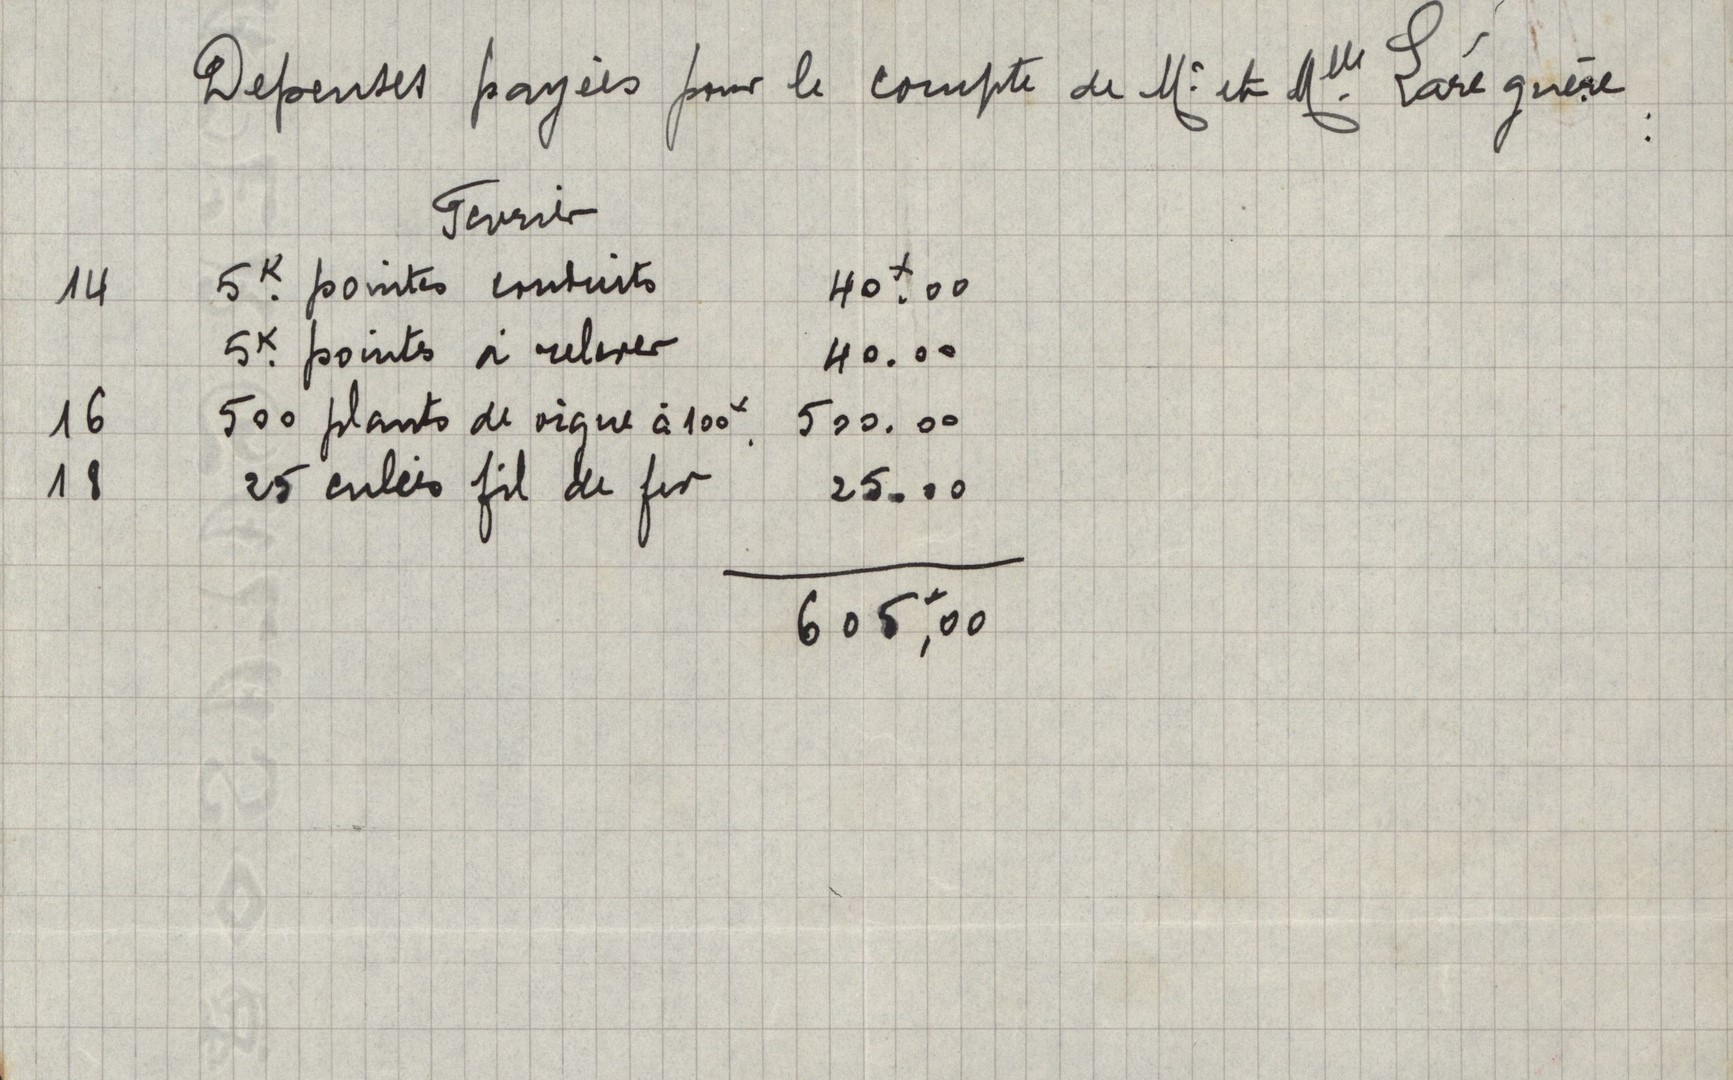 Depenses payées pour le compte de Mr. et Mlle. Laréguère :
Fevrier
14 5K. pointes conduits 40f.00
5K. pointes à relever 40.00
16 500 plants de vigne à 100f. 500.00
18 25 culées fil de fer 25.00
605f,00